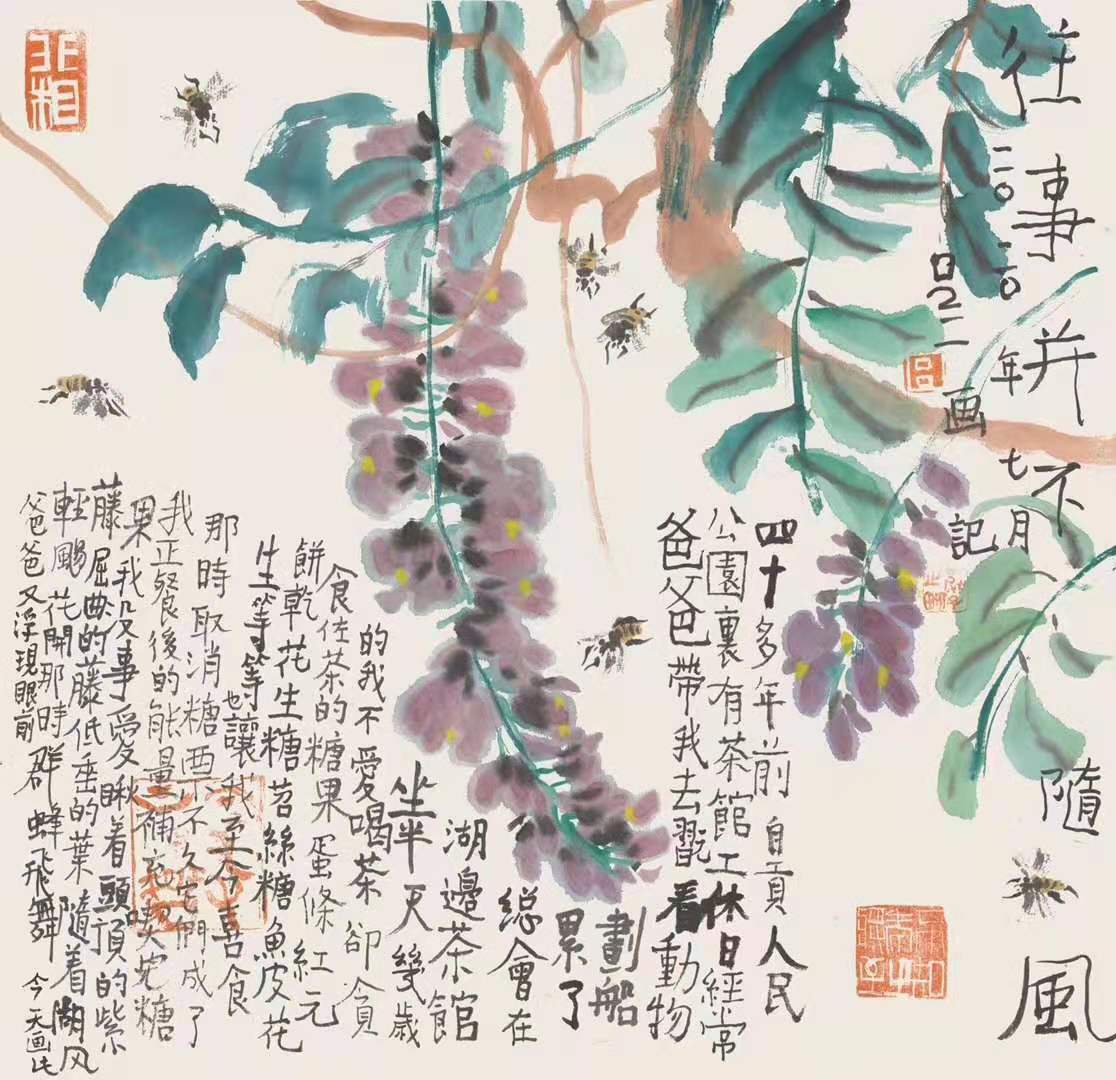 往事并不隨風
二〇一〇年七月
画記
四十多年前自貢人民
公園裏有茶館工休日經常
爸爸帶我去翫看動物
劃船
累了
總會在
湖邊茶館
坐半天幾歲
的我不愛喝茶卻貪
食佐茶的糖果蛋條紅元
餅乾花生糖苕絲糖魚皮花
生等等也讓我至今喜食
那時取消糖票不久它們成了
我正餐後的能量補充喫完糖
果我没事愛瞅着頭頂的紫
藤屈曲的藤低垂的葉隨着湖风
輕颺花開那時群蜂飛舞今天画此
爸爸又浮現眼前